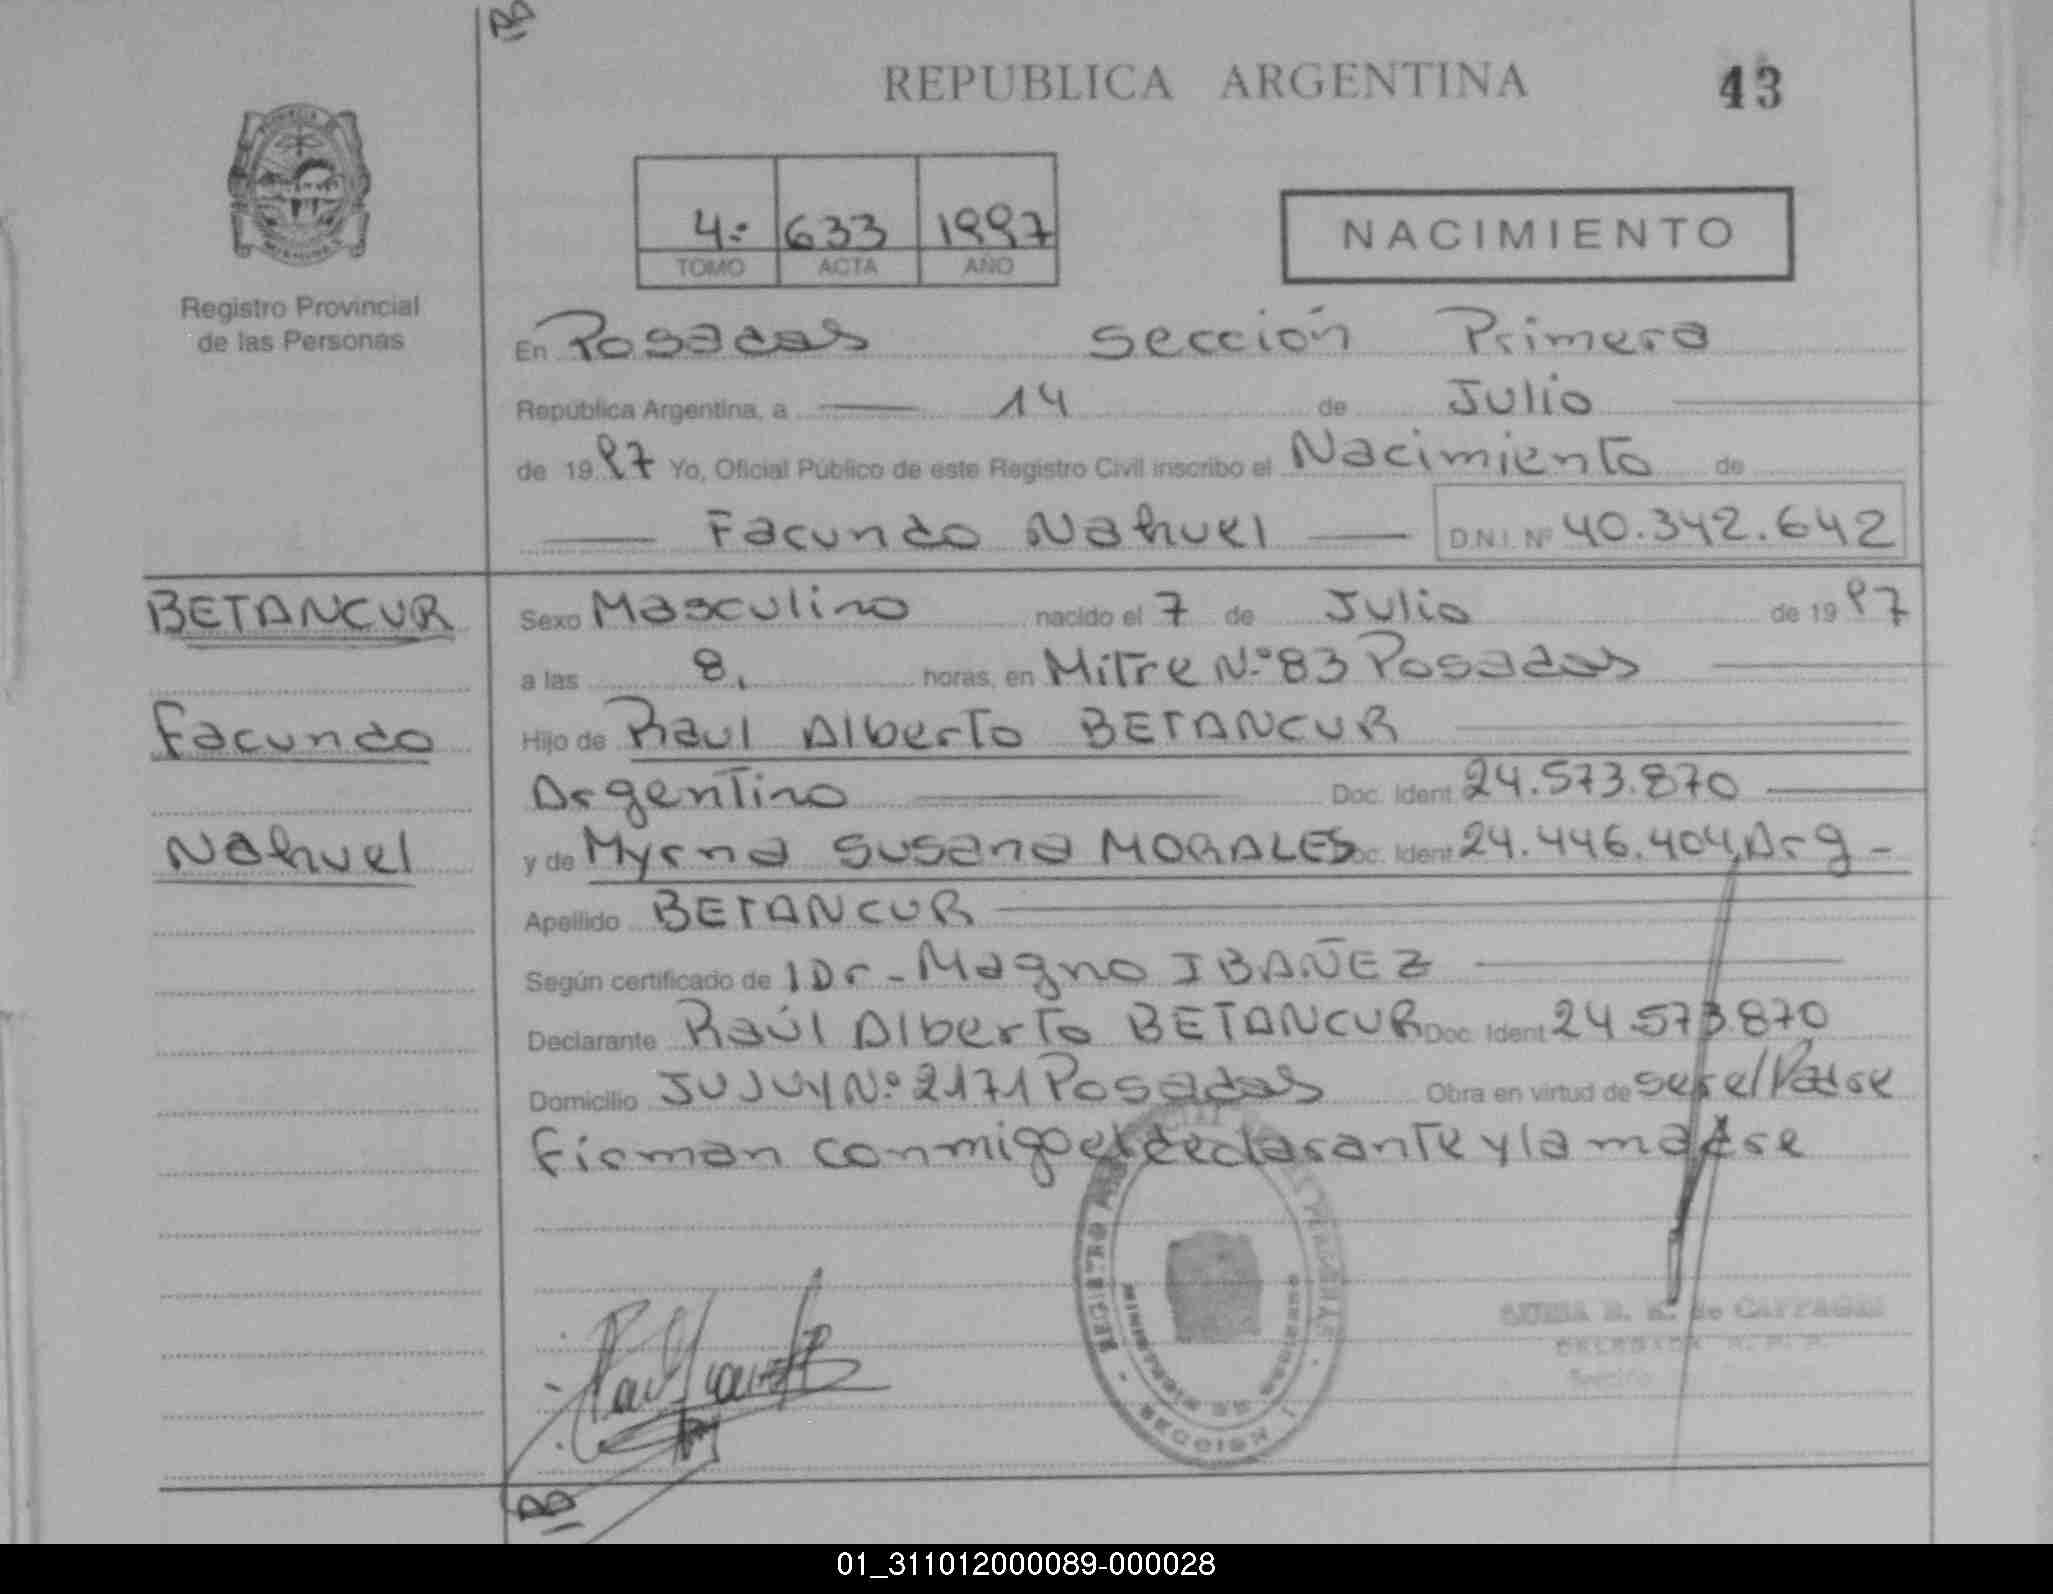 REPUBLICA ARGENTINA
43
Registro Provincial
de las Personas
4º 633 1997
TOMO ACTA AÑO
NACIMIENTO
En Posadas sección Primera
República Argentina, a 14 de Julio
de 1997 Yo, Oficial Público de este Registro Civil inscribo el Nacimiento de
Facundo Nahuel D.N.I. Nº 40.342.642
BETANCUR
Facundo
Nahuel
Sexo Masculino nacido el 7 de Julio de 1997
a las 8, horas, en Mitre Nº 83 Posadas
Hijo de Raul Alberto BETANCUR
Argentino Doc. Ident. 24.573.870
y de Myrna Susana MORALES Doc. Ident. 24.446.404, Arg-
Apellido BETANCUR
Según certificado de 1 Dr- Magno IBAÑEZ
Declarante Raúl Alberto BETANCUR Doc. Ident. 24.573.870
Domicilio JUJUY Nº 2171 Posadas Obra en virtud de ser el Padre
firman conmigo el declarante y la madre
de CAFFAGNI
DELEGADA R. P. P.
Sección
01_311012000089-000028